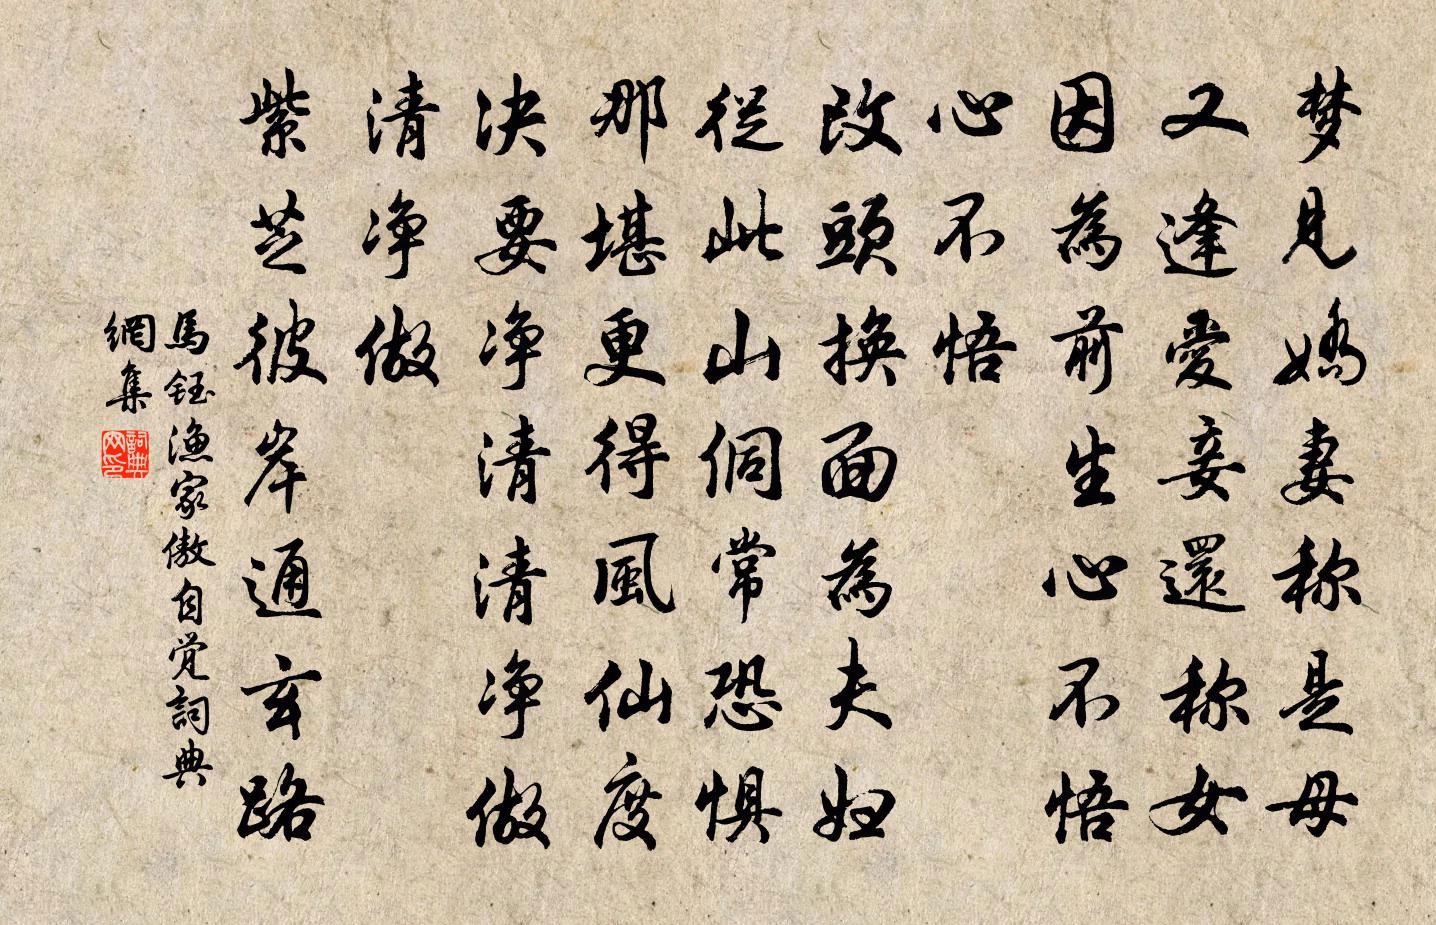 梦見嬌妻称是母
又逢愛妾還称女
因為前生心不悟
心不悟
改頭換面為夫婦
從此山侗常恐惧
那堪更得風仙度
決要净清清净做
清净做
紫芝彼岸通玄路
馬鈺漁家傲自觉詞典
網集
詞典网印